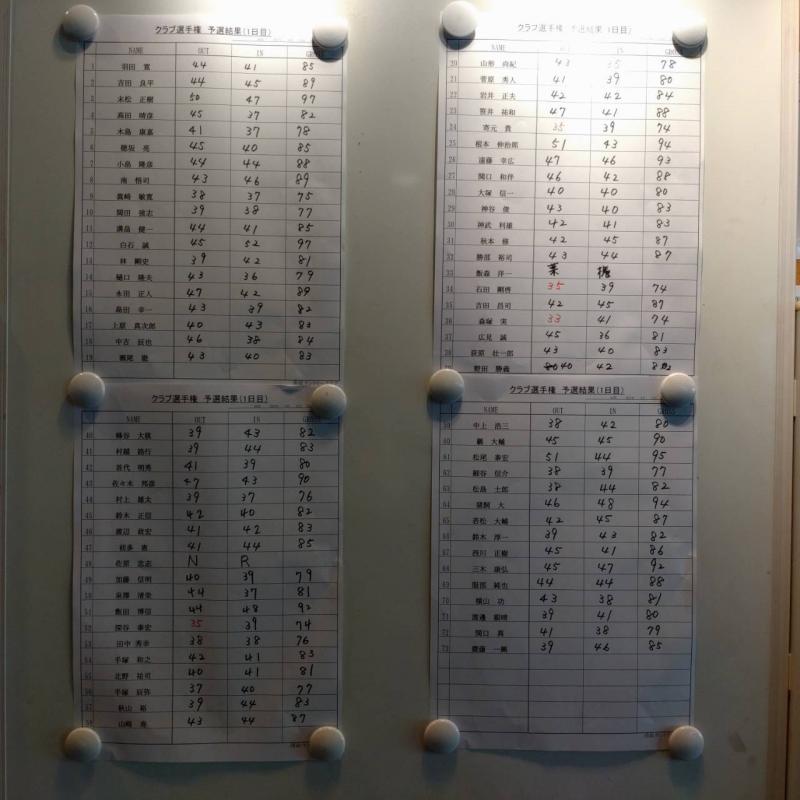 クラブ選手権 予選結果(1日目)
NAME OUT IN GROSS
1 羽田 寛 44 41 85
2 吉田 良平 44 45 89
3 末松 正樹 50 47 97
4 高田 晴彦 45 37 82
5 木島 康嘉 41 37 78
6 穂坂 亮 45 40 85
7 小島 隆彦 44 44 88
8 南 悟司 43 46 89
9 眞崎 敏寛 38 37 75
10 関田 強志 39 38 77
11 溝畠 健一 44 41 85
12 白石 誠 45 52 97
13 林 剛史 39 42 81
14 樋口 隆夫 43 36 79
15 永田 正人 47 42 89
16 島田 幸一 43 39 82
17 上原 真次郎 40 43 83
18 中吉 辰也 46 38 84
19 瀬尾 慶 43 40 83
クラブ選手権 予選結果(1日目)
20 山形 尚紀 43 35 78
21 菅原 秀人 41 39 80
22 岩井 正夫 42 42 84
23 笹井 祐和 47 41 88
24 寄元 貴 35 39 74
25 根本 伸治郎 51 43 94
26 遠藤 幸広 47 46 93
27 関口 和伴 46 42 88
28 大塚 信一 40 40 80
29 神谷 俊 43 40 83
30 神武 利雄 42 41 83
31 秋本 修 42 45 87
32 勝部 裕司 43 44 87
33 飯森 洋一 棄 権
34 石田 剛啓 35 39 74
35 吉田 昌司 42 45 87
36 森塚 実 33 41 74
37 広見 誠 45 36 81
38 荻原 壮一郎 43 40 83
野田 勝義 40 42 82
クラブ選手権 予選結果(1日目)
NAME OUT IN GROSS
40 蜂谷 大鉄 39 43 82
41 村越 路行 39 44 83
42 首代 明秀 41 39 80
43 佐々木 邦彦 47 43 90
44 村上 雄太 39 37 76
45 鈴木 正信 42 40 82
46 渡辺 政宏 41 42 83
47 憲 41 44 85
48 佐原 忠志 N R
49 加藤 信明 40 39 79
50 泉澤 清栄 44 37 81
51 飯田 博信 44 48 92
52 深谷 泰宏 35 39 74
53 田中 秀幸 38 38 76
54 手塚 和之 42 41 83
55 北野 祐司 40 41 81
56 手塚 辰弥 37 40 77
57 秋山 裕 39 44 83
58 山崎 43 44 87
クラブ選手権 予選結果(1日目)
NAME OUT IN GROSS
59 中上 浩三 38 42 80
60 大輔 45 45 90
61 松尾 泰宏 51 44 95
62 細谷 信介 38 39 77
63 松島 士郎 38 44 82
64 猿飼 大 46 48 94
65 若松 大輔 42 45 87
66 鈴木 淳一 39 43 82
67 西川 正樹 45 41 86
68 三木 康弘 45 47 92
69 服部 純也 44 44 88
70 横山 功 43 38 81
71 渡邊 39 41 80
72 関口 真 41 38 79
73 齋藤 39 46 85